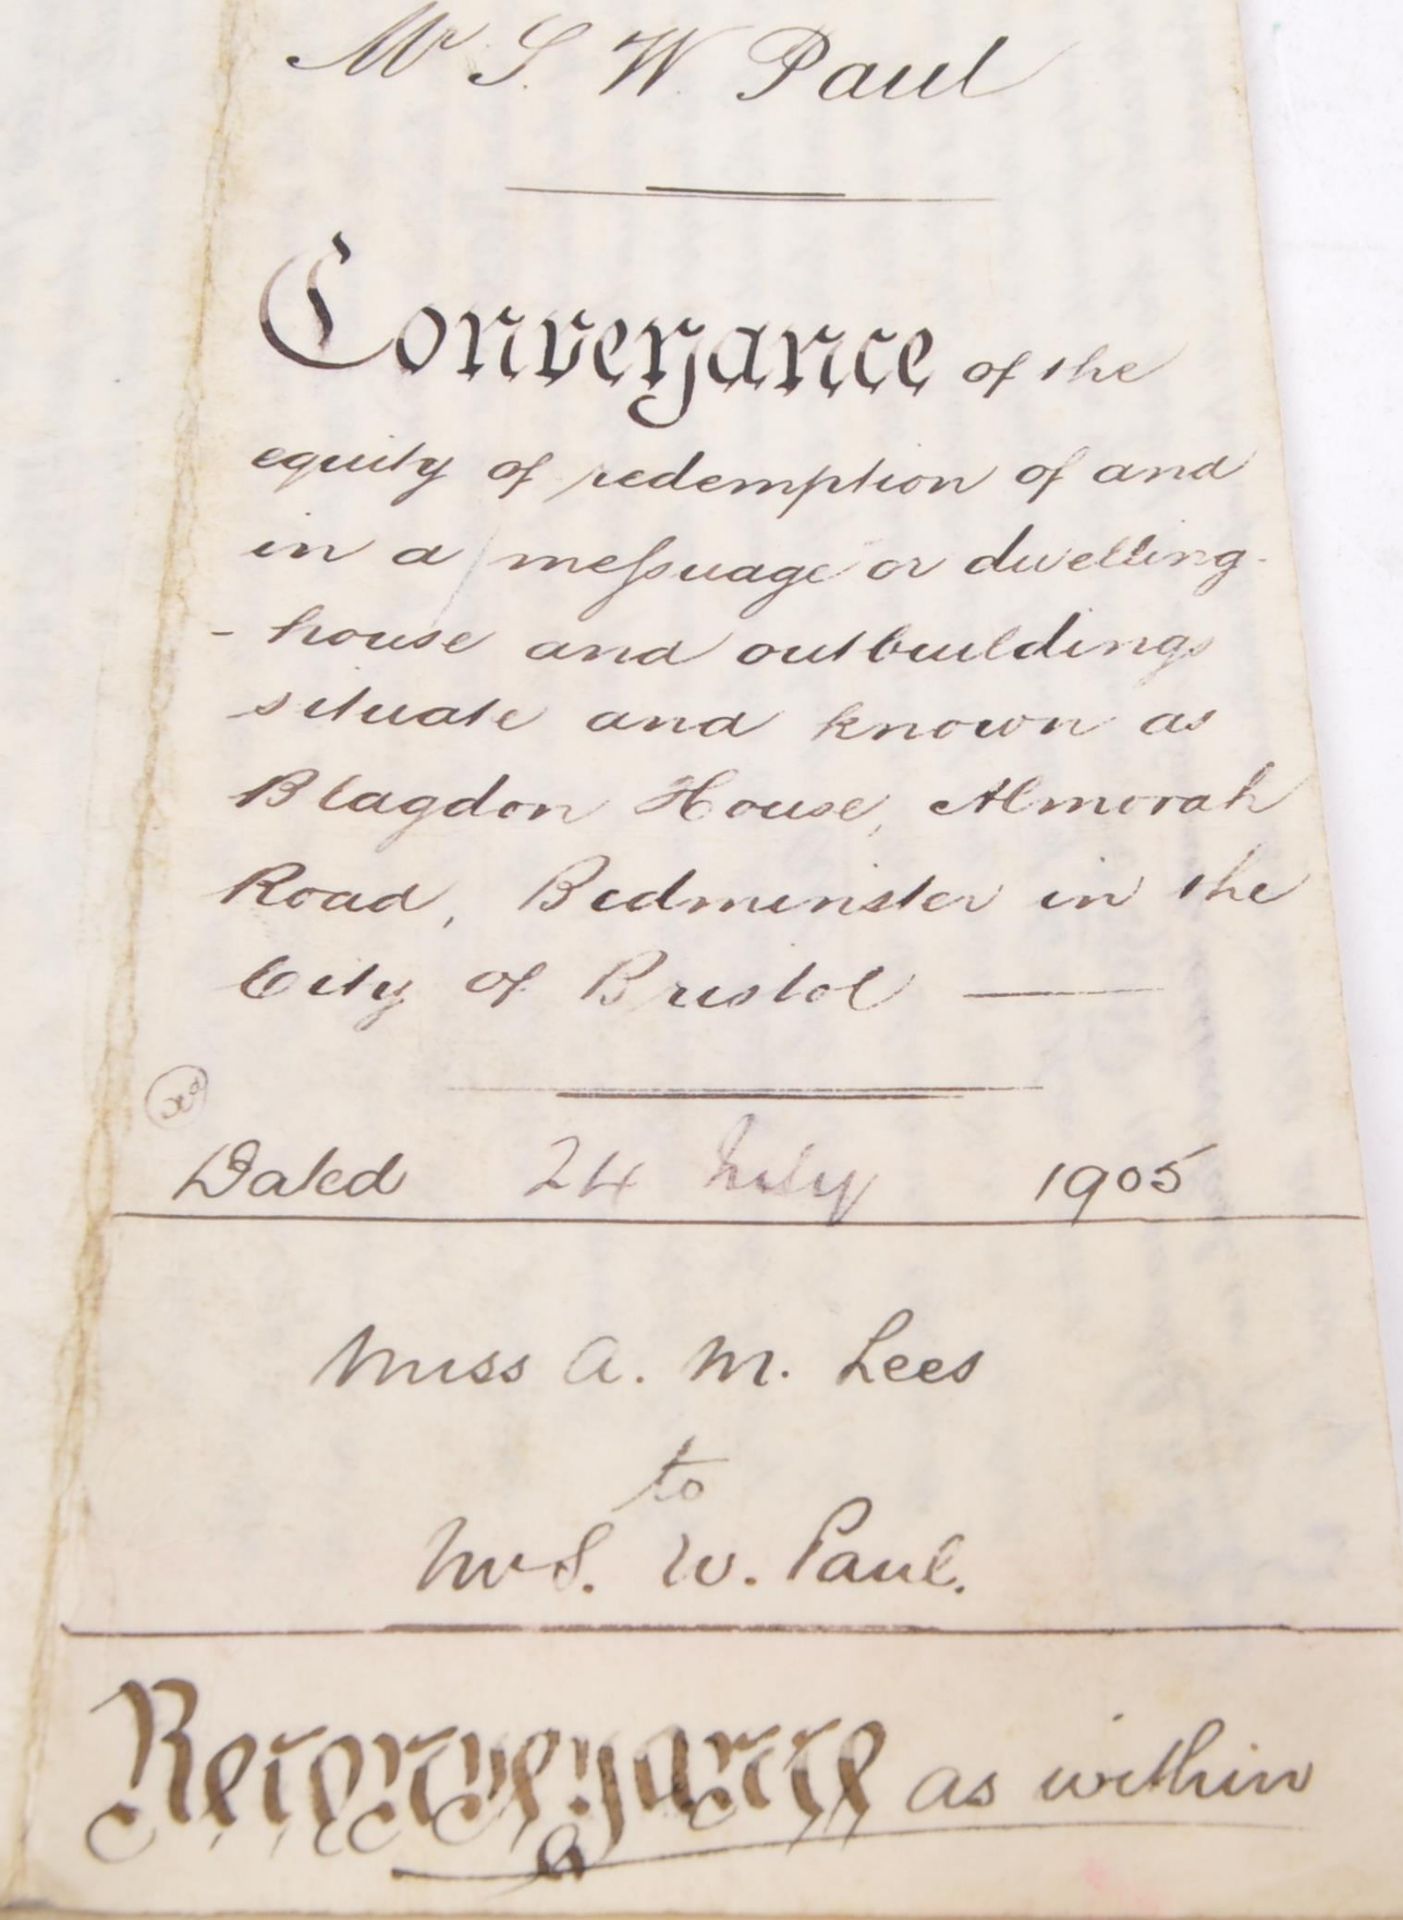 Mr S. W. Paul
Conveyance of the
equity of redemption of and
in a meſsuage or dwelling-
- house and outbuildings
situate and known as
Blagdon House, Almorah
Road, Bedminster in the
City of Bristol
Dated 24 July 1905
Miss A. M. Lees
to
Mr S. W. Paul.
Reconveyance as within